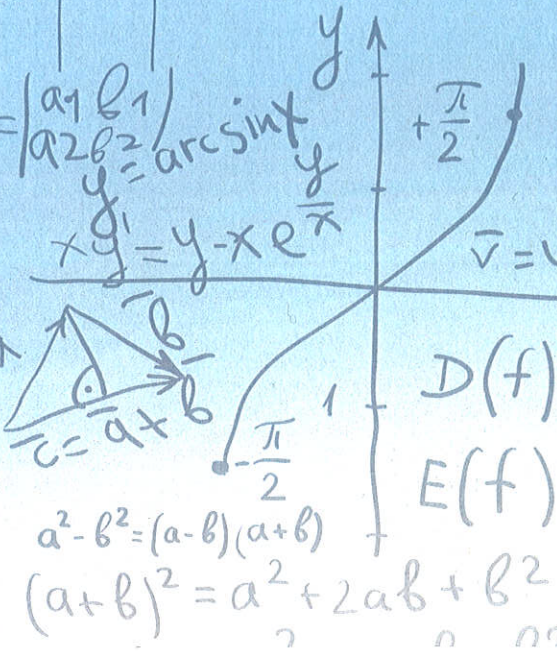 y
= |a1 b1|
|a2 b2|
y = arcsinx
+ π/2
xy' = y - x e^(y/x)
v̄ =
b̄
c̄ = ā + b̄
1
D(f)
- π/2
E(f)
a² - b² = (a-b)(a+b)
(a+b)² = a² + 2ab + b²